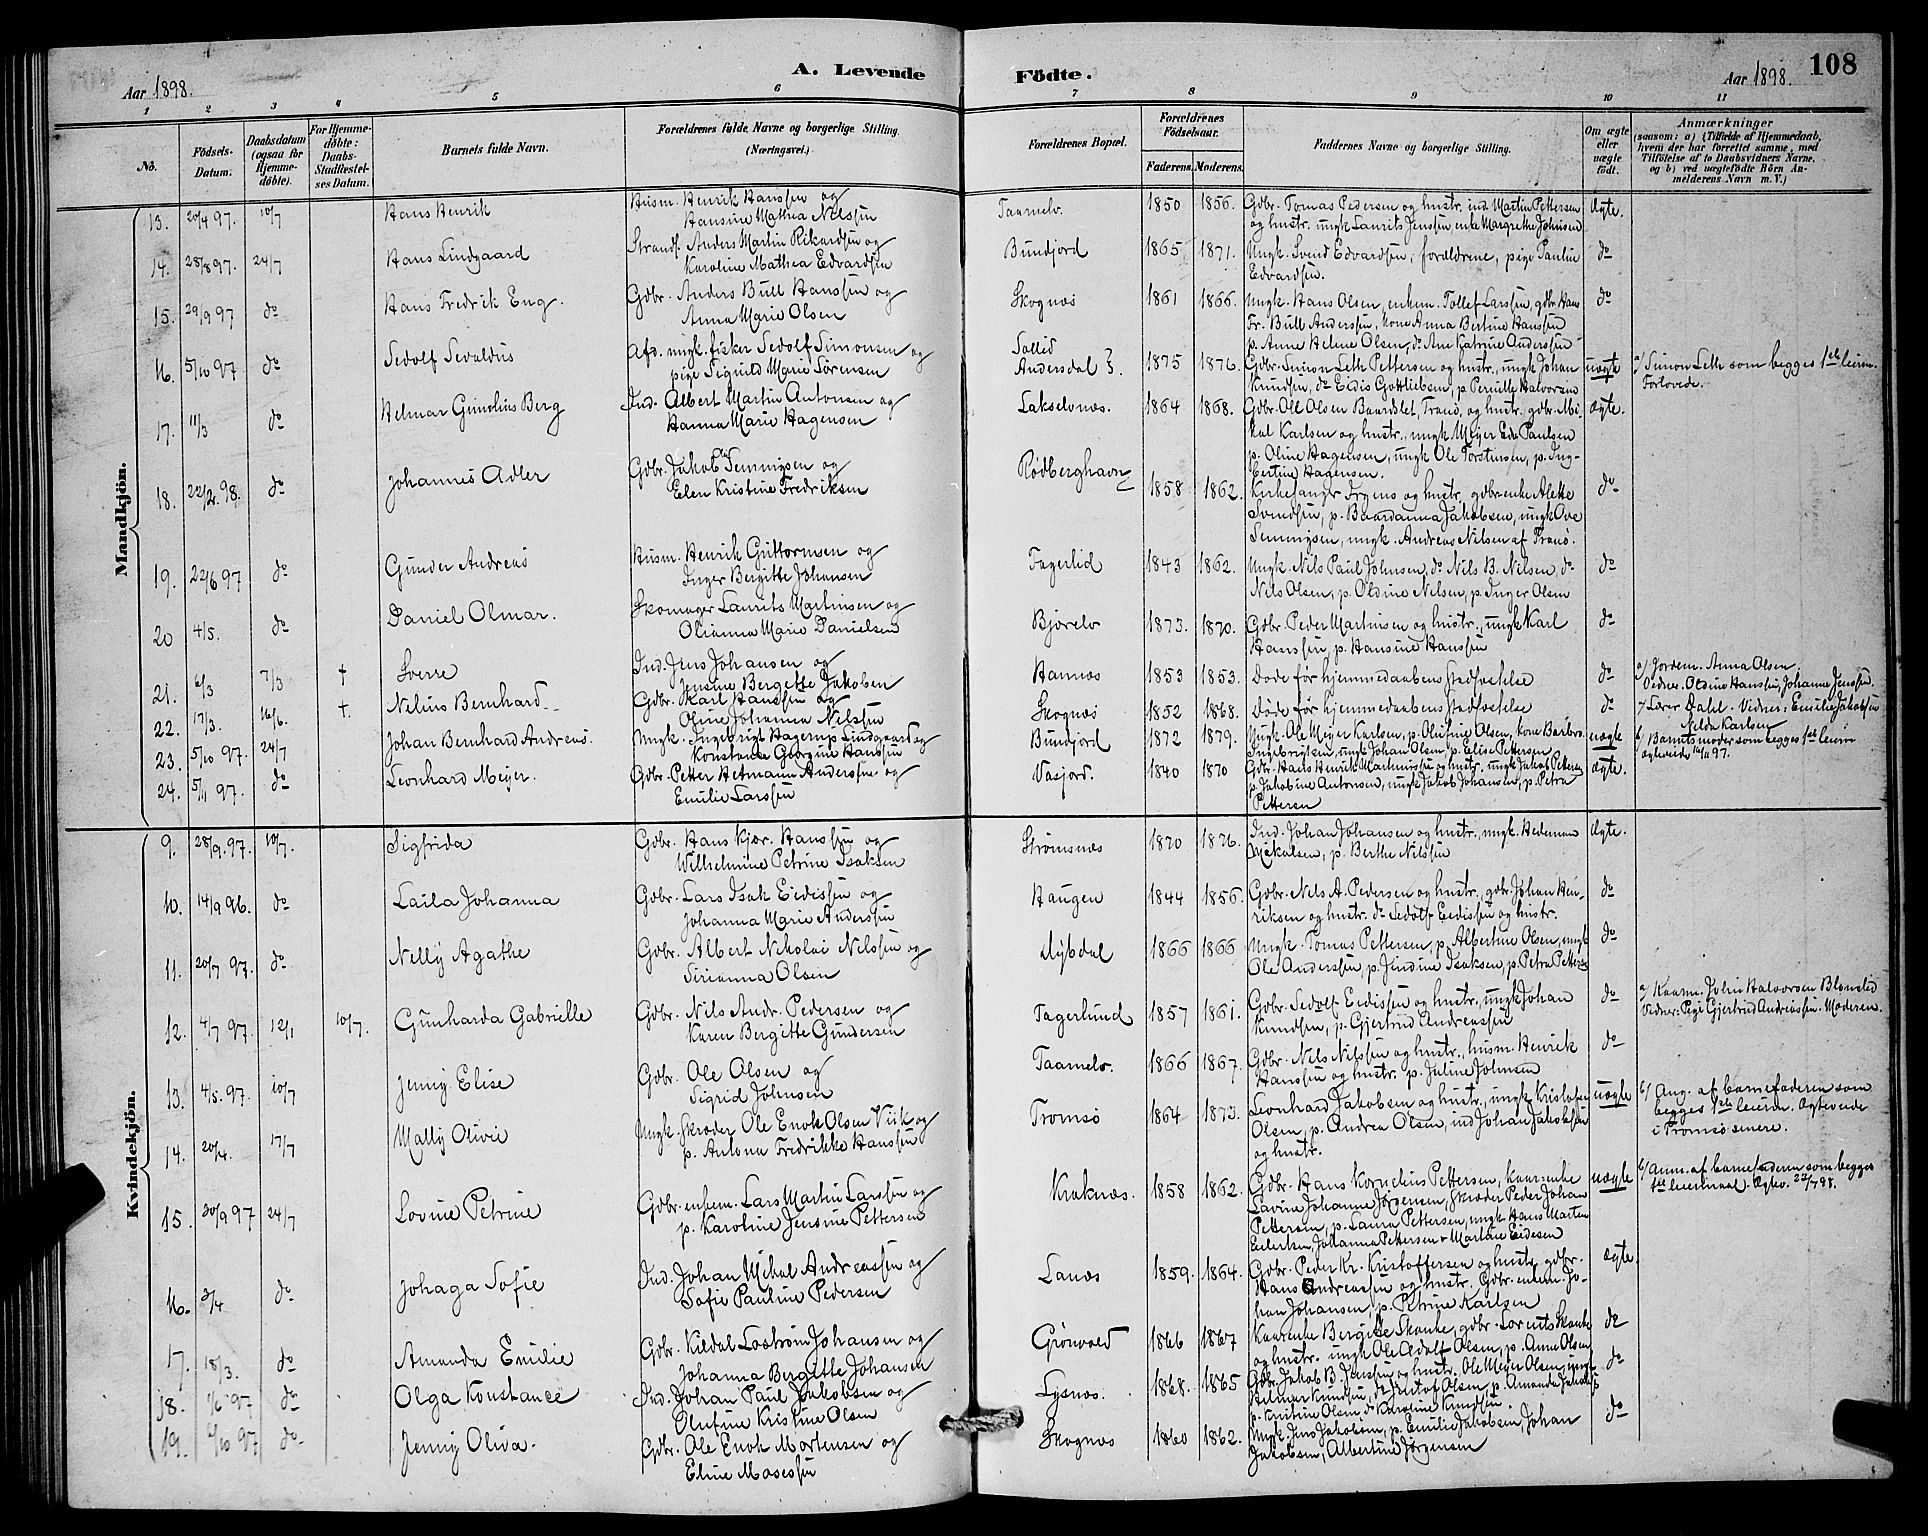 A. Levende Födte.
108
Aar 1898.
Aar 1898.
1 2 3 4 5 6 7 8 9 10 11
No.
Födsels-Datum.
Daabsdatum (ogsaa for Hjemme-döbte).
For Hjemme-döbte: Daabs-Stadfæstel-ses Datum.
Barnets fulde Navn.
Forældrenes fulde Navne og borgerlige Stilling. (Næringsvei.)
Forældrenes Bopæl.
Forældrenes Födselsaar.
Faderens. Moderens.
Faddernes Navne og borgerlige Stilling.
Om ægte eller uægte födt.
Anmærkninger
(saasom: a) (Tilfælde af Hjemmedaab, hvem der har forrettet samme, med Tilföielse af to Daabsvidners Navne, og b) ved uægtefödte Börn An-melderens Navn m. V.)
Mandkjön.
13. 20/4 97. 10/7 Hans Henrik Husm. Henrik Hanssen og Hansine Mathea Nilssen Taamelv. 1850 1856. Gdbr. Tomas Pedersen og hustr. ind. Martin Pettersen og hustr. ungk Laurits Jenssen, enke Margrethe Johnsen Ægte.
14. 28/8 97. 24/7 Hans Lindgaard Strands. Anders Martin Rikardsen og Karoline Mathea Edvardsen Bundjord 1865 1871. Ungk. Svend Edvardsen, forældrene, pige Pauline Edvardsen. do
15. 29/9 97 do Hans Fredrik Eng. Gdbr. Anders Bull Hanssen og Anna Marie Olsen Skognæs 1861 1866. Ungk. Hans Olsen, enkem. Tollef Larssen, gdbr. Hans Fr. Bull Anderssen, kone Anna Bertine Hanssen p. Anne Helene Olsen, do Ane Katrine Anderssen do
16. 5/10 97 do Sedolf Sevaldus Afd. ungk. fisker Sedolf Simonsen og pige Signeld Marie Sörensen Sollid Andersdal 1875 1876. Gdbr. Simon Leth Pettersen og hustr., ungk Johan Knudsen, do Eidis Gottliebsen, p. Pernille Halvorsen uægte a/ Simon Leth som begges 1ste leierm. Forlovede.
17. 11/3 do Helmar Gunelius Berg Ind. Albert Martin Antonsen og Hanna Marie Hagensen Lakselvnæs. 1864 1868. Gdbr. Ole Olsen Baardslet, Tranö, og hustr. gdbr. Mi-kal Karlsen og hustr., ungk Meyer Edv. Paulsen p. Oline Hagensen, ungk Ole Torstensen, p. Ing-bertine Hagensen. ægte.
18. 22/2. 98. do Johannes Adler Gdbr. Jakob Semmingsen og Elen Kristine Fredriksen Rødberghavn 1858 1862. Kirkesanger Irgens og hustr., gdbr. enke Alette Svendsen, p. Baardanna Jakobsen, ungk Ove Semmgsen, ungk. Andreas Nilsen af Tranö. do
19. 22/6 97 do Gunder Andreas Husm. Henrik Guttormsen og Inger Bergitte Johansen Fagerlid 1843 1862. Ungk. Nils Paul Johnsen, do Nils B. Nilsen, do Nils Olsen, p. Oldine Nilsen, p. Inger Olsen do
20 4/5. do Daniel Olmar. Skomager Laurits Martinsen og Olianna Marie Danielsen Bjørelv 1873. 1870. Gdbr. Peder Martinsen og hustr., ungk Karl Hanssen, p. Hansine Hanssen do
21. 6/3 7/3 † Sverre Ind. Jens Johansen og Jensine Bergitte Jakobsen Hamnæs 1853 1853. Døde før hjemmedaabens stadfæstelse do a/ Jordem. Anna Olsen. Vidner. Oldine Hanssen, Johanne Jenssen.
22. 17/3. 16/6. †. Nelius Bernhard Gdbr. Karl Hanssen og Oline Johanna Nilssen Skognæs 1852 1868. Døde før hjemmedaabens stadfæstelse do a/ Lærer Dahl. Vidner: Emilie Jakobsen Nelda Karlsen
23. 5/10 97. 24/7 Johan Bernhard Andreas. Ungk. Ingebrigt Hagerup Lindgaard og Konstanse Georgine Hanssen Bundjord 1872 1879. Ungk. Ole Meyer Karlsen, p. Olufine Olsen, kone Barbro Ingebrigtsen, ungk Johan Olsen, p. Elise Pettersen uægte b/ Barnets moder som begges 1ste leierm. ægteviede 16/11 97.
24. 5/11 97. do Leonhard Meyer. Gdbr. Petter Hetmann Anderssen og Emilie Larssen Vasjord. 1840 1870 Gdbr. Hans Henrik Martinussen og hustr. ungk Jakob Pettersen p. Jakobine Antonsen, ungk Jakob Johansen, p. Petra Pettersen ægte.
Kvindekjön.
9. 28/9. 97. 10/7. Sigfrida Gdbr. Hans Kjær. Hanssen og Wilhelmine Petrine Isaksen Strømsnæs 1870 1876. Ind. Johan Johansen og hustr., ungk. Hedeman Mikalsen, p. Berthe Nilssen Ægte.
10. 14/9 96. do Laila Johanna Gdbr. Lars Isak Eidissen og Johanna Marie Anderssen Haugen 1844 1856. Gdbr. Nils A. Pedersen og hustr., gdbr. Johan Hen-riksen og hustr. do Sedolf Eidissen og hustr. do
11. 20/7 97. do Nelly Agathe Gdbr. Albert Nikolai Nilssen og Sirianna Olsen 1866 1866 Ungk. Tomas Pettersen, p. Albertine Olsen, ungk Ole Anderssen, p. Jindine Isaksen, p. Petra Petters. do
12. 4/7 97. 12/1 10/7. Gunharda Gabrielle Gdbr. Nils Andr. Pedersen og Karen Bergitte Gundersen Fagerlund 1857 1861. Gdbr. Sedolf Eidissen og hustr., ungk Johan Knudsen, p. Gjertrud Andreassen do a/ Kaarm. John Halvorsen Blomlid Vidner: Pige Gjertrud Andreassen. Moderen.
13. 4/5. 97. 10/7 Jenny Elise Gdbr. Ole Olsen og Sigrid Johnsen Taamelv. 1866 1867. Gdbr. Nils Nilssen og hustr., husm. Henrik Hanssen og hustr. p. Juline Johnsen do
14. 20/4. 17/7 Mally Olivie Ungk. skræder Ole Enok Olsen Viik og p. Antona Fredrikke Hanssen Tromsö 1864 1873. Leonhard Jakobsen og hustr., ungk Kristofer Olsen, p. Andrea Olsen, ind Johan Jakobsen og hustr. uægte b/ Ang. af barnefaderen som begges 1ste leierm. Ægteviede i Tromsö senere.
15. 30/9 97 24/7 Lovine Petrine Gdbr. enkem. Lars Martin Larssen og p. Karoline Jensine Pettersen Kraknæs. 1858 1862. Gdbr. Hans Kornelius Pettersen, kaarenke Lavine Johanne Jörgensen, skræder Peder Johan Pettersen, p. Laura Pettersen, ungk Hans Martin Eilertsen, Johanna Pettersen + Martine Eidesen uægte b/ Anm. af barnefaderen som begges 1ste leiermaal. Ægtev. 22/7 98.
16. 3/4 do Johaga Sofie Ind. Johan Mikal Andreassen og Sofie Pauline Pedersen Lanæs 1859. 1864. Gdbr. Peder Kr. Kristoffersen og hustr., gdbr. Hans Andreassen og hustr. Gdbr. enkem. Jo-han Johansen, p. Petrine Karlsen ægte.
17. 18/3. do Amanda Emilie Gdbr. Kildal Løström Johansen og Johanna Bergitte Johansen Grönvold 1866 1867 Kaarenke Bergitte Skanke, gdbr. Lorents Skanke og hustr. ungk Ole Adolf Olsen, p. Anna Olsen do
18. 1/6 97 do Olga Konstance Ind. Johan Paul Jakobsen og Olufine Kristine Olsen Lysnæs. 1868. 1865 Gdbr. Jakob B. Jenssen og hustr. Ole Meyer Olsen, ungk Helmar Knudsen, do Detlof Olsen, p. Amanda Jakobs. p. Kristine Olsen do Karoline Knudsen. do
19. 6/10 97 do Jenny Oliva. Gdbr. Ole Enok Mortensen og Eline Mosessen Skognæs 1860 1862. Ungk. Jens Jakobsen, p. Emilie Jakobsen, Johan Jakobsen, Albertine Jörgensen do